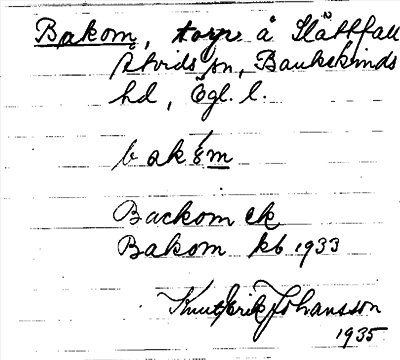 Bakom, torp å Slättfall
Åtvids sn, Bankekinds
hd, Ögl. l.
baköm
Backom ek
Bakom kb 1933
Knut Erik Johansson
1935